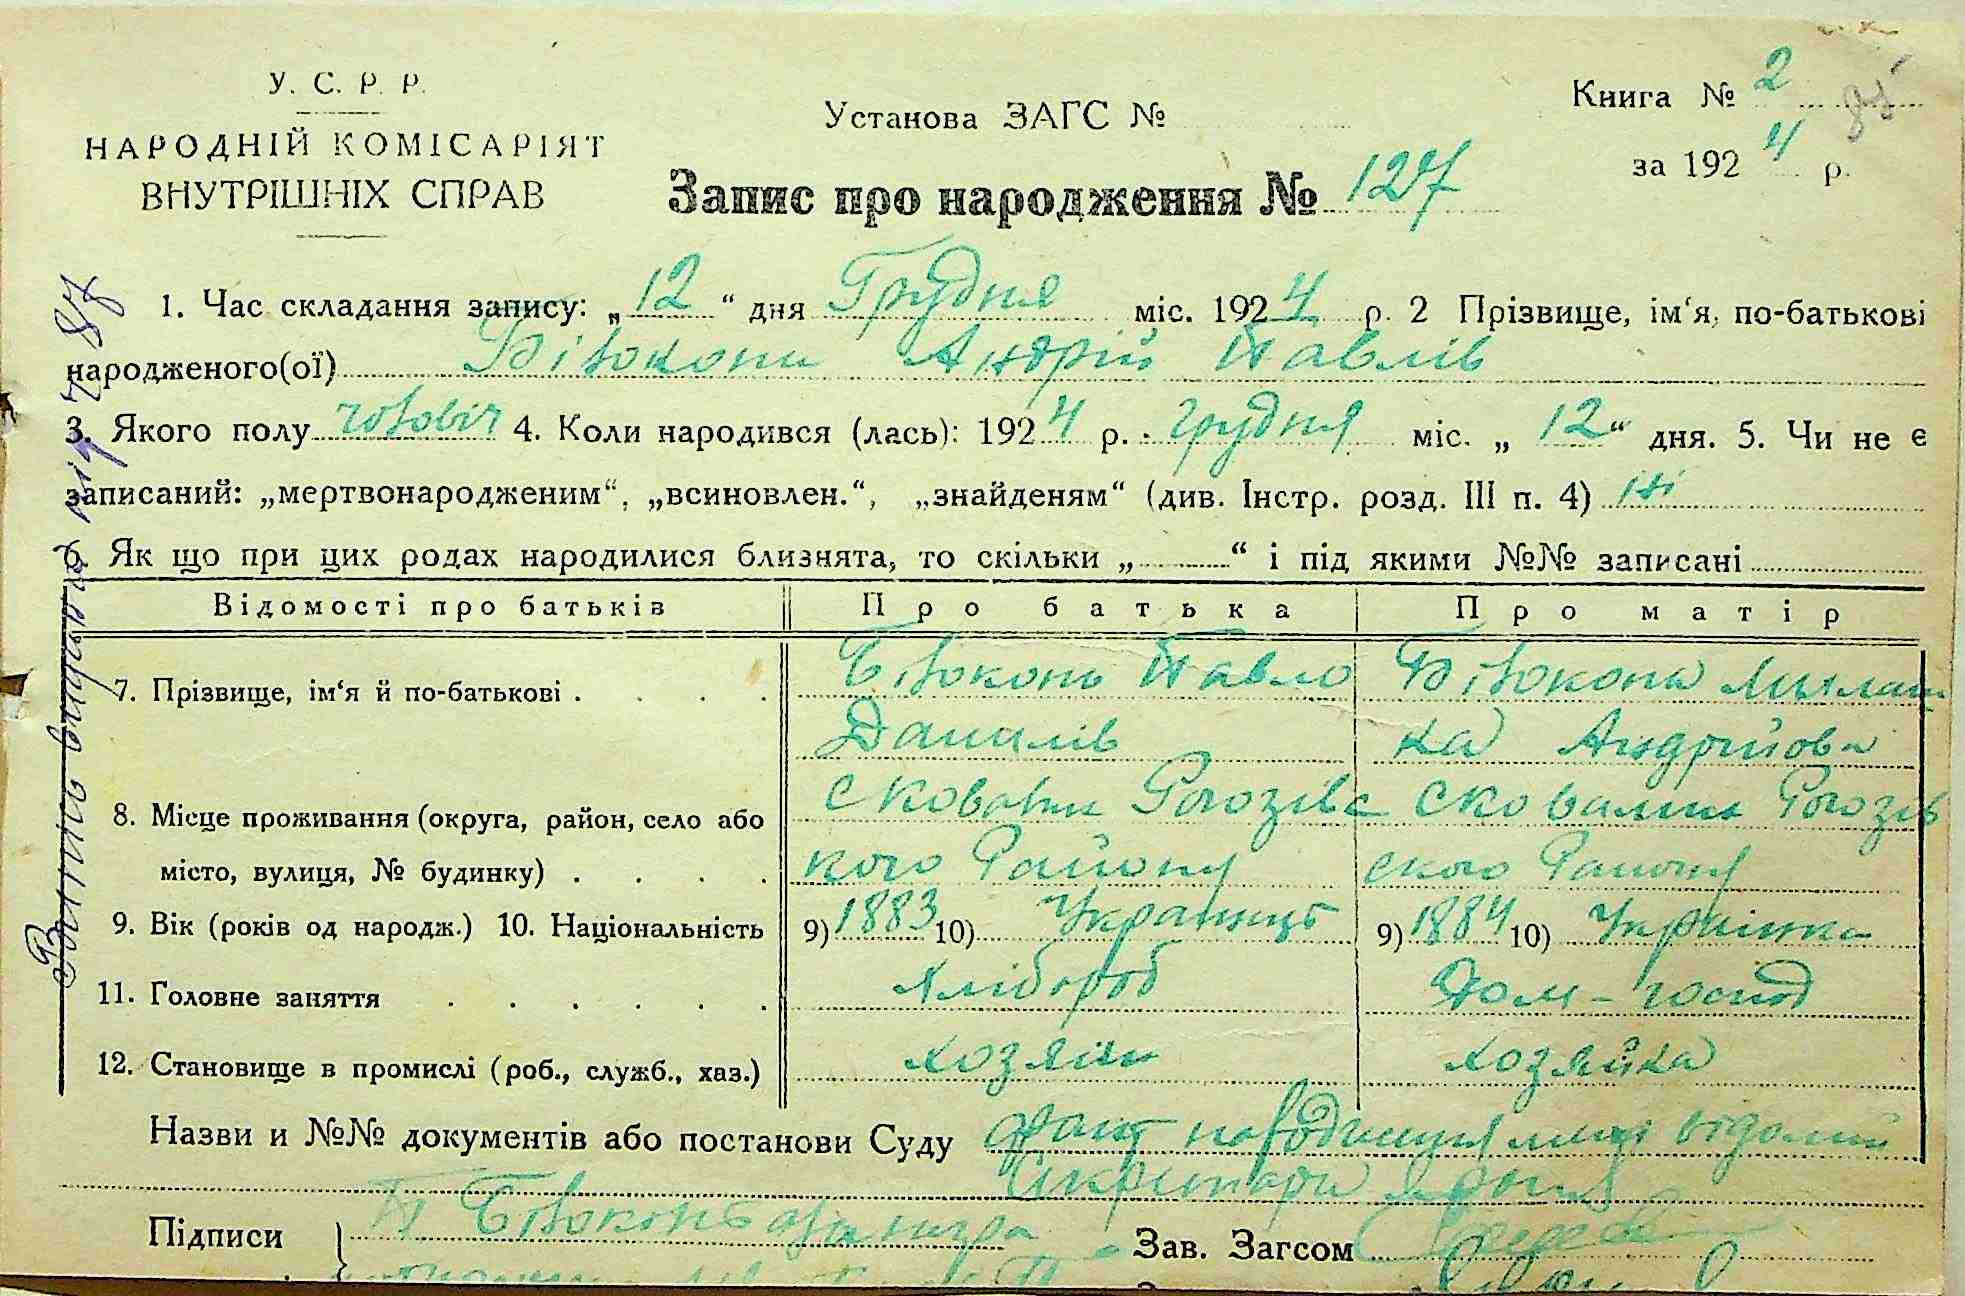 У. С. Р. Р.
НАРОДНІЙ КОМІСАРІЯТ
ВНУТРІШНІХ СПРАВ
Установа ЗАГС №
Книга № 2
за 1924 р.
85
Запис про народження № 127
1. Час складання запису: „12“ дня Грудня міс. 1924 р. 2 Прізвище, ім‘я, по-батькові
народженого(ої) Білоконь Андрій Павлів
3. Якого полу чоловіч 4. Коли народився (лась): 1924 р. грудня міс. „12“ дня. 5. Чи не є
записаний: „мертвонародженим“, „всиновлен.“, „знайденям“ (див. Інстр. розд. III п. 4) ні
6 Як що при цих родах народилися близнята, то скільки „ “ і під якими №№ записані
Відомості про батьків Про батька Про матір
7. Прізвище, ім‘я й по-батькові . . . . Білоконь Павло Білоконь
Данилів ка Андрійова
8. Місце проживання (округа, район, село або Рогозівс Рогозів
місто, вулиця, № будинку) . . . . кого Району ского Району
9. Вік (років од народж.) 10. Національність 9) 1883 10) Українець 9) 1884 10) Українка
11. Головне заняття . . . . . . Хлібороб Дом-господ
12. Становище в промислі (роб., служб., хаз.) хозяїн хозяйка
Назви и №№ документів або постанови Суду факт народження мені відомий
Підписи П Білоконь Зав. Загсом
Запись